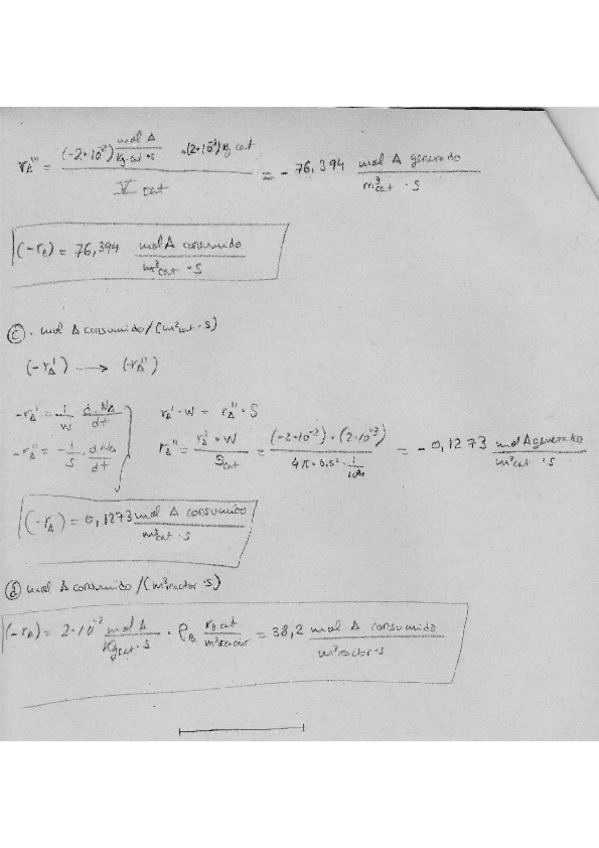 r_A''' = ((-2·10⁻²) mol A / kg cat · s · (2·10⁻³) kg cat) / V cat = - 76,394 mol A generado / m³cat · s
(-r_A) = 76,394 mol A consumido / m³cat · s
(c) · mol A consumido / (m²cat · s)
(-r_A') ⟶ (-r_A'')
-r_A' = -1/W d·N_A/dt    r_A' · W = r_A'' · S
-r_A'' = -1/S · dN_A/dt    r_A'' = r_A' · W / S cat = (-2·10⁻²) · (2·10⁻³) / 4π · 0,5² · 1/ = - 0,1273 mol A generado / m²cat · s
(-r_A) = 0,1273 mol A consumido / m²cat · s
(d) mol A consumido / (m³reactor · s)
(-r_A) = 2·10⁻² mol A / Kg cat · s · ρ_B cat / m³reactor = 38,2 mol A consumido / m³reactor · s